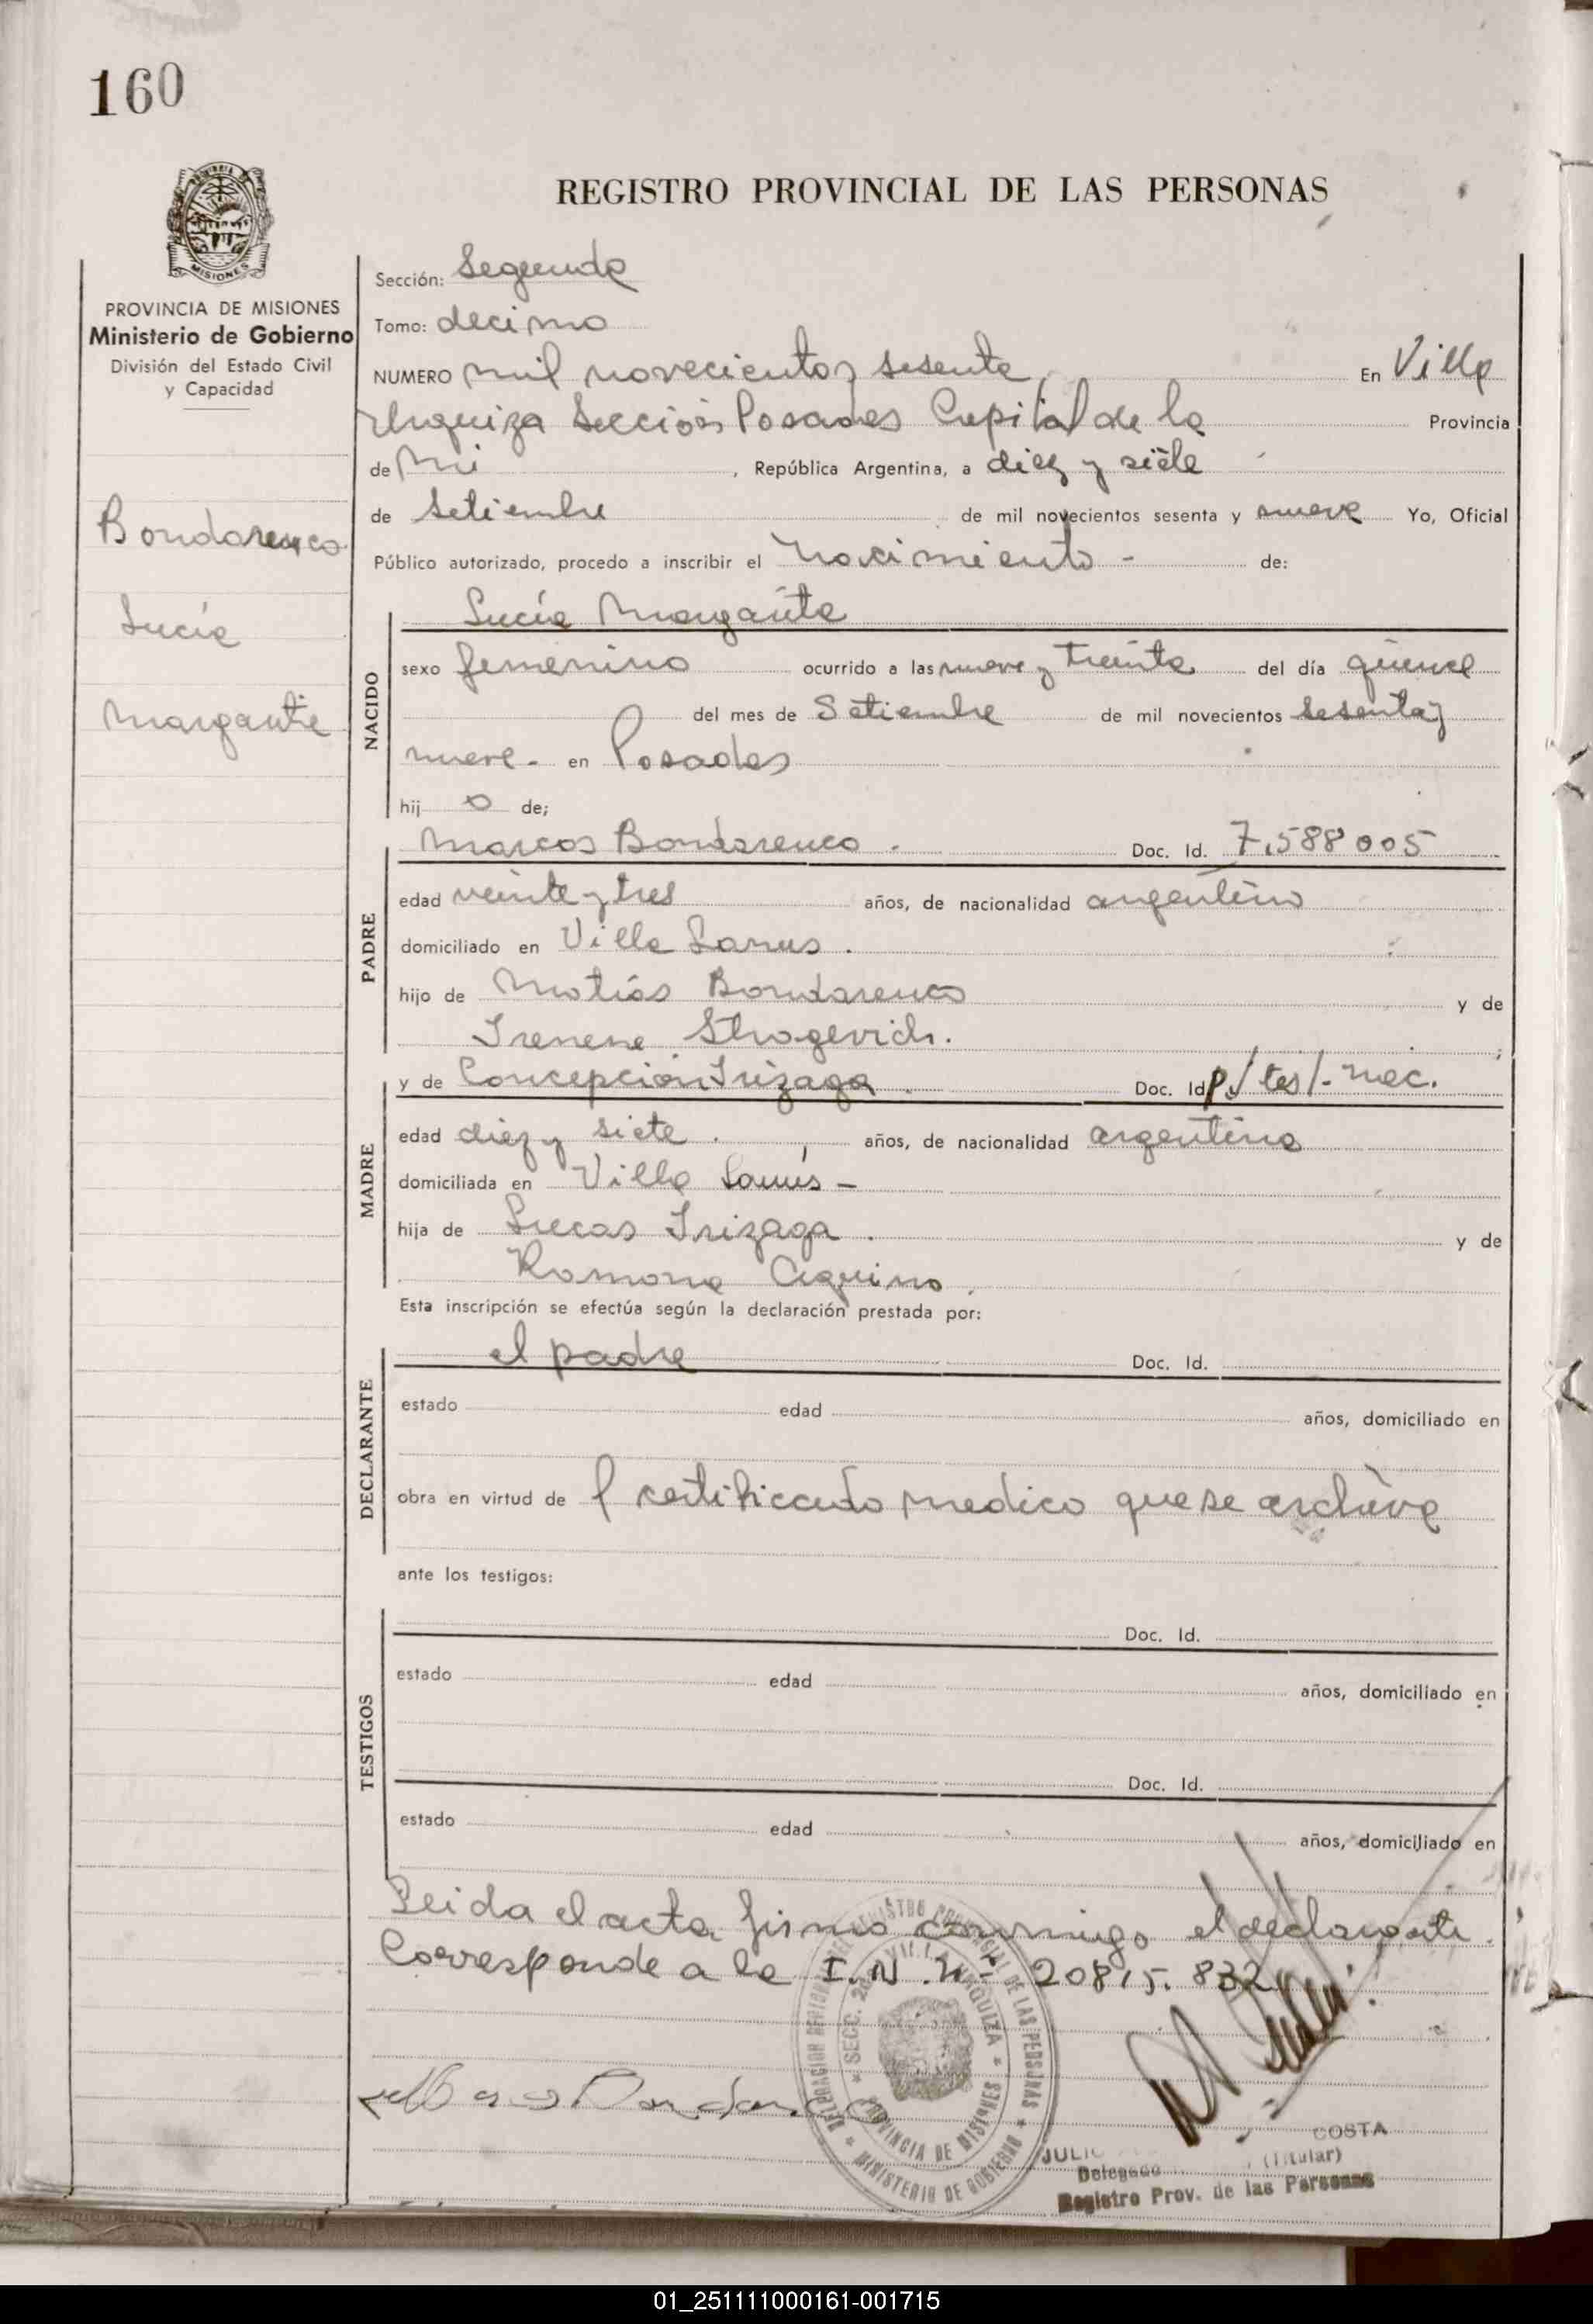 160
REGISTRO PROVINCIAL DE LAS PERSONAS
MISIONES
PROVINCIA DE MISIONES
Ministerio de Gobierno
División del Estado Civil
y Capacidad
Bondarenco
Lucía
Margarita
Sección: Segunda
Tomo: decimo
NUMERO mil novecientos sesenta En Villa
Urquiza Sección Posadas Capital de la Provincia
de Mi , República Argentina, a diez y siete
de Setiembre de mil novecientos sesenta y nueve Yo, Oficial
Público autorizado, procedo a inscribir el Nacimiento - de:
NACIDO
Lucía Margarita
sexo femenino ocurrido a las nueve y treinta del día quince
del mes de Setiembre de mil novecientos sesenta y
nueve - en Posadas
hij a de;
PADRE
Marcos Bondarenco . Doc. Id. 7.588005
edad veinte y tres años, de nacionalidad argentino
domiciliado en Villa Lanus .
hijo de Matías Bondarenco y de
Irenene Stragevich.
MADRE
y de Concepción Irizaga Doc. Id p/ tes/. nac.
edad diez y siete . años, de nacionalidad argentina
domiciliada en Villa Lanús -
hija de Lucas Irizaga . y de
Ramona Aquino .
Esta inscripción se efectúa según la declaración prestada por:
DECLARANTE
el padre Doc. Id.
estado edad años, domiciliado en
obra en virtud de l certificado medico que se archiva
ante los testigos:
TESTIGOS
Doc. Id.
estado edad años, domiciliado en
Doc. Id.
estado edad años, domiciliado en
Leida el acta firma conmigo el declarante.
Corresponde a la I.N.N° 20815.832
PROVINCIA DE MISIONES
MINISTERIO DE GOBIERNO
JULIO COSTA
Delegado (Titular)
Registro Prov. de las Personas
01_251111000161-001715